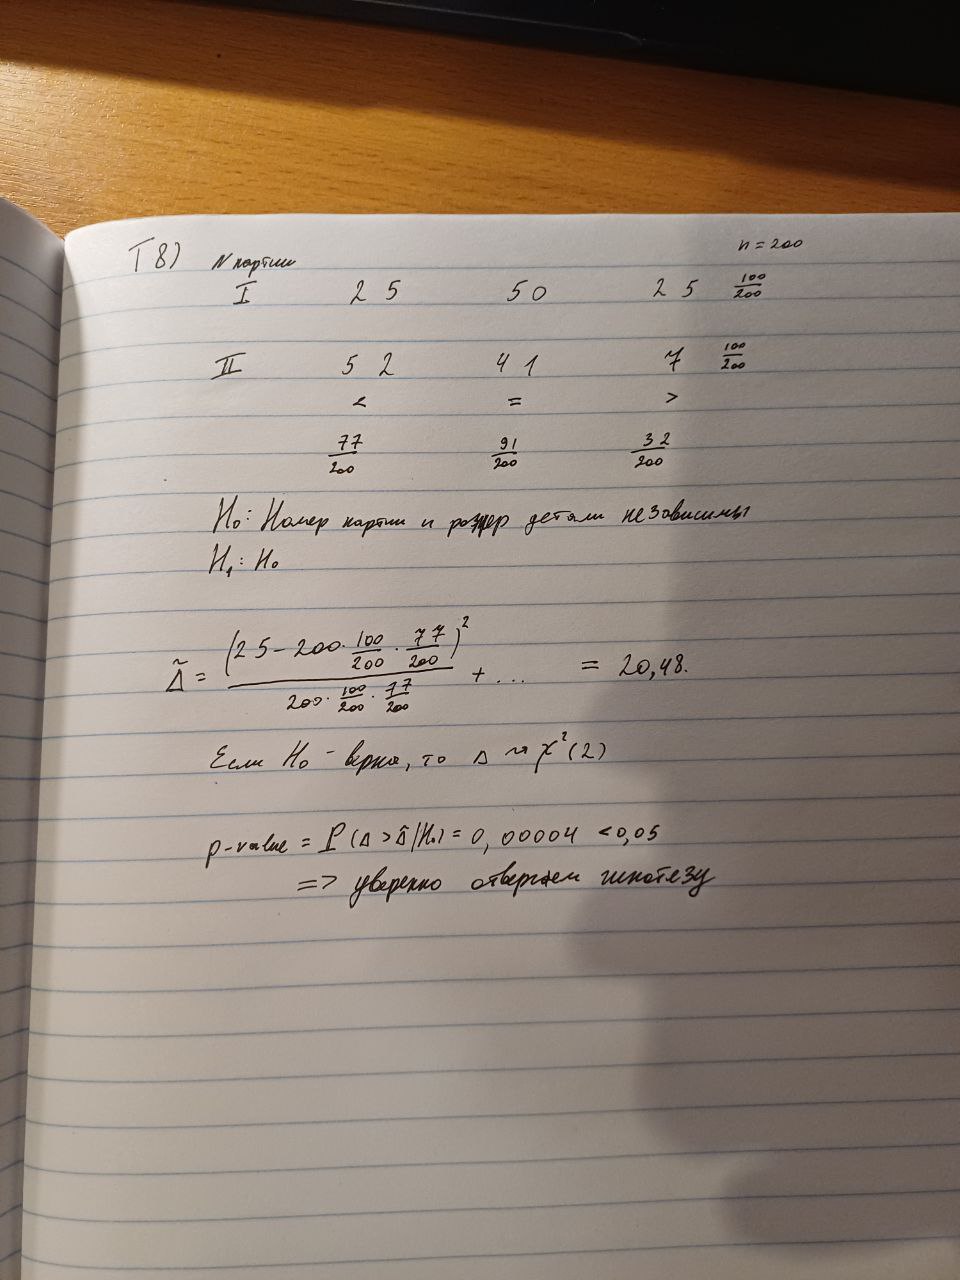 T8) N партии n = 200
I 25 50 25 100/200
II 52 41 7 100/200
< = >
77/200 91/200 32/200
H₀: Номер партии и размер детали независимы
H₁: H₀
Δ̃ = (25 - 200 · 100/200 · 77/200)² / (200 · 100/200 · 77/200) + ... = 20,48.
Если H₀ - верна, то Δ ~ χ²(2)
p-value = P(Δ > Δ̃ | H₀) = 0,00004 < 0,05
=> уверенно отвергаем гипотезу